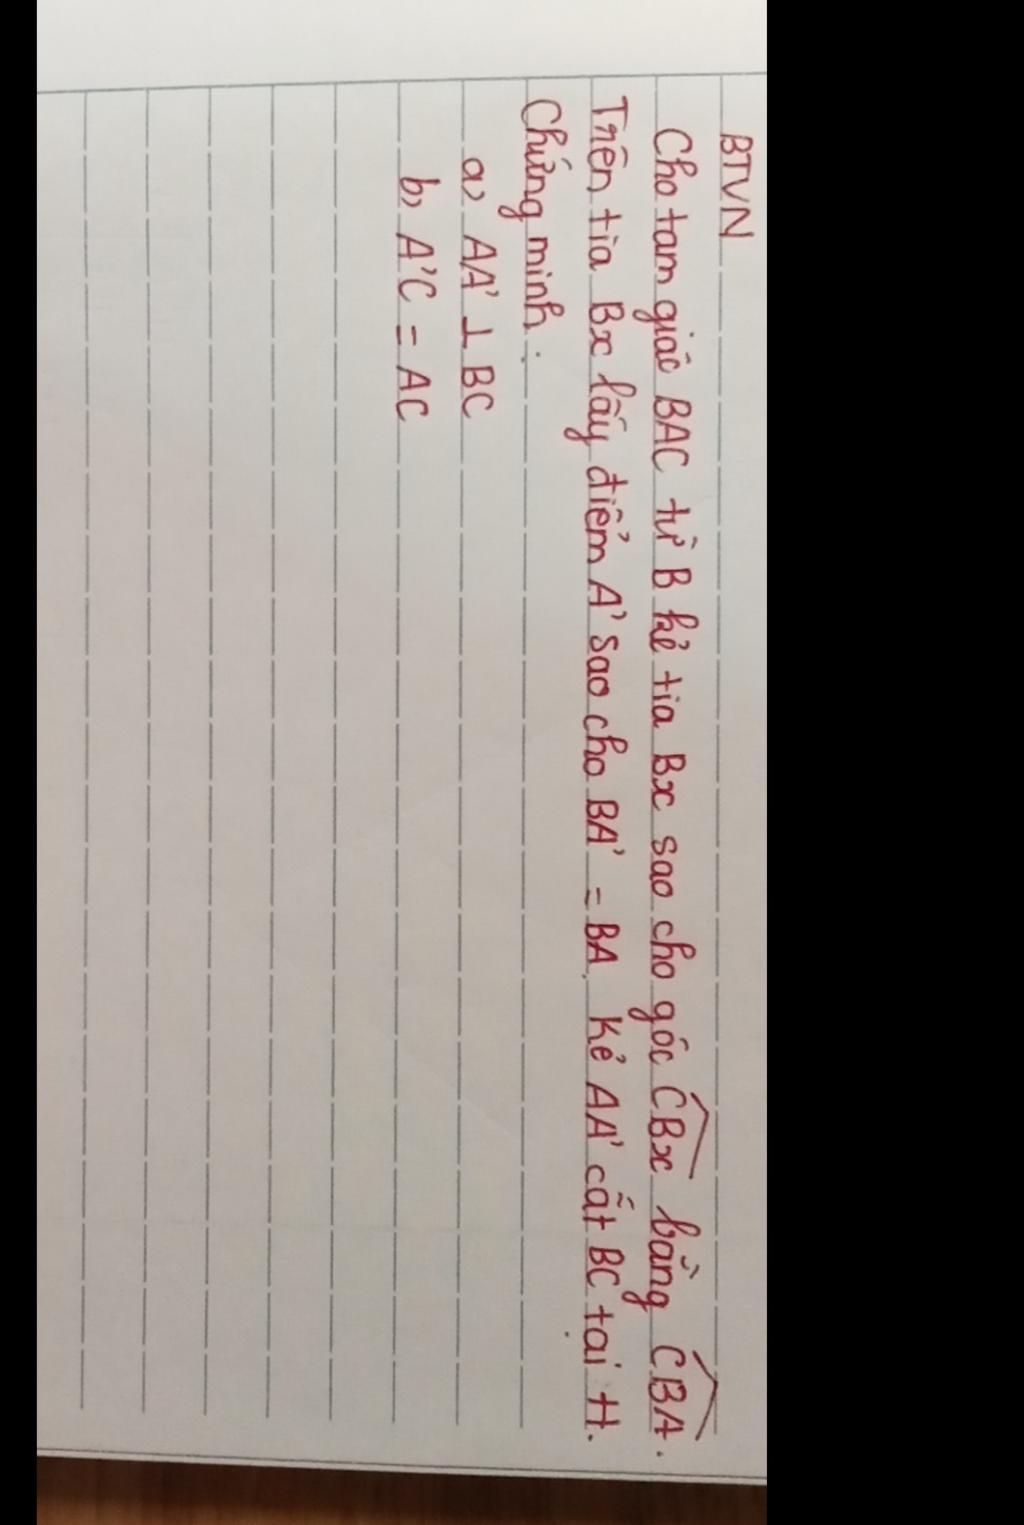 BTVN
Cho tam giác BAC từ B kẻ tia Bx sao cho góc CBx bằng CBA.
Trên tia Bx lấy điểm A' sao cho BA' = BA. Kẻ AA' cắt BC tại H.
Chứng minh:
a, AA' ⊥ BC
b, A'C = AC